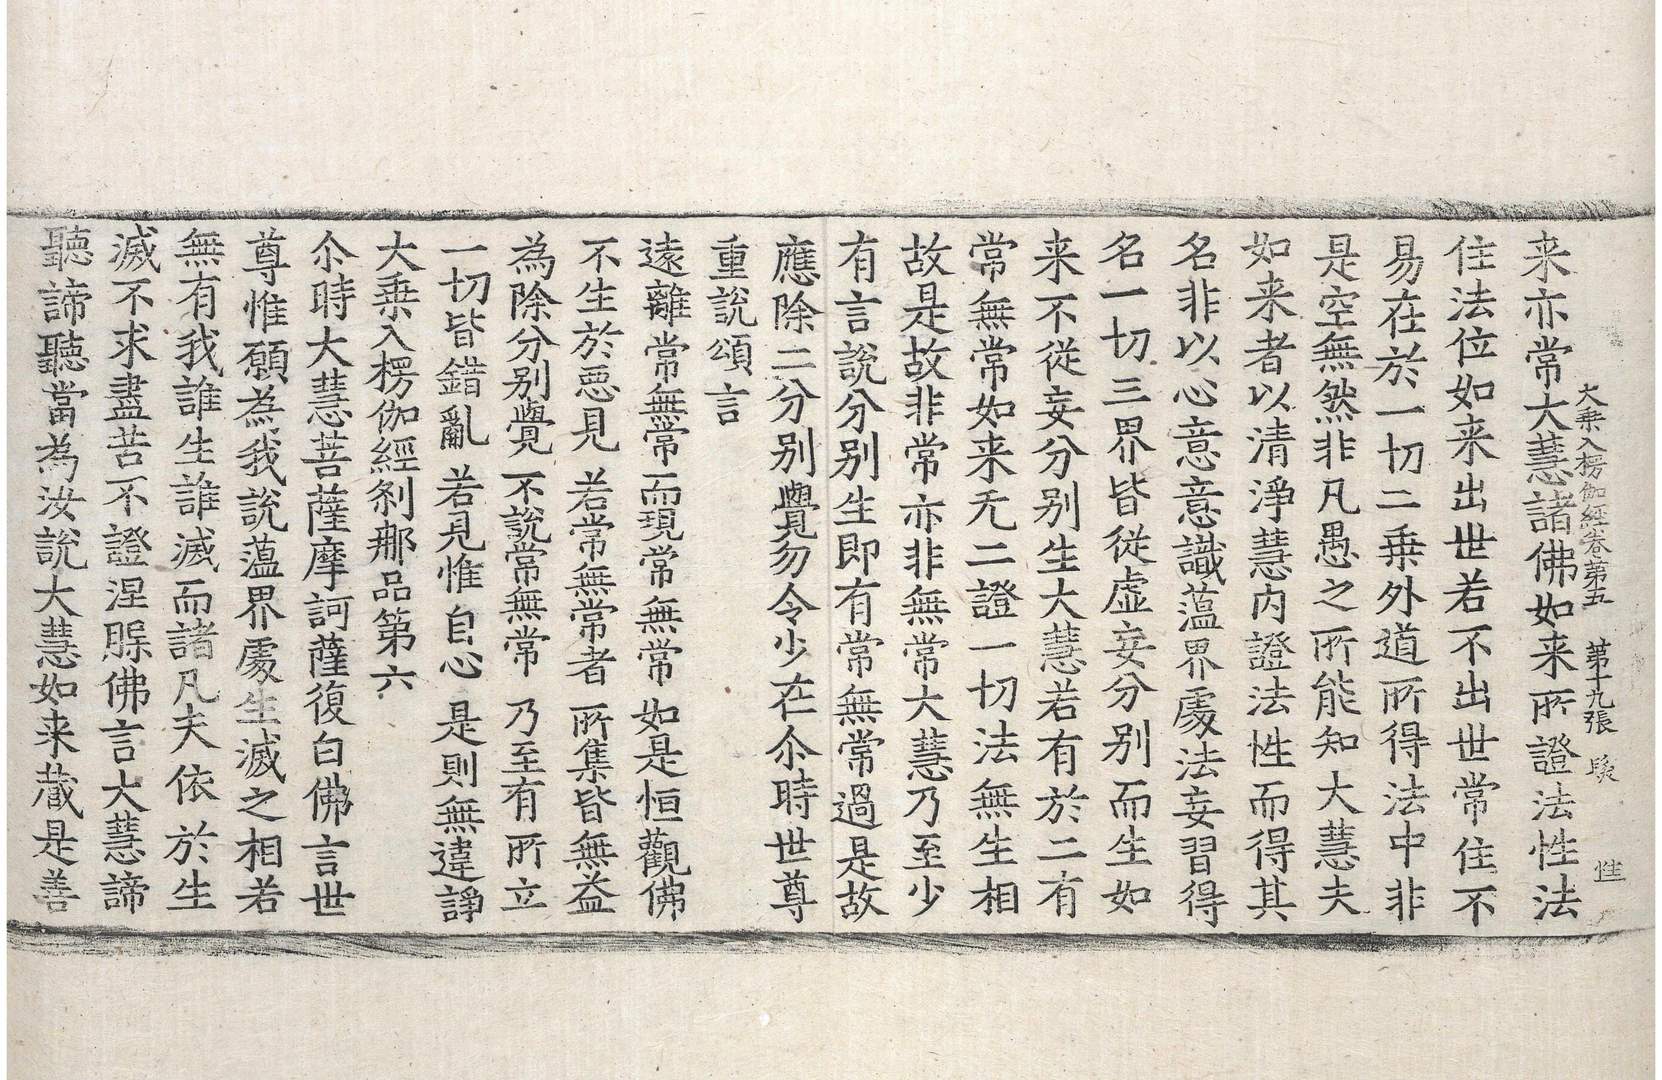 大乗入楞伽經卷第五 第十九張 性
来亦常大慧諸佛如来所證法性法
住法位如来出世若不出世常住不
易在於一切二乗外道所得法中非
是空無然非凡愚之所能知大慧夫
如来者以清淨慧内證法性而得其
名非以心意意識蕰界處法妄習得
名一切三界皆從虚妄分别而生如
来不從妄分别生大慧若有於二有
常無常如来无二證一切法無生相
故是故非常亦非無常大慧乃至少
有言說分别生即有常無常過是故
應除二分别覺勿令少在尒時世尊
重說頌言
遠離常無常 而現常無常 如是恒觀佛
不生於惡見 若常無常者 所集皆無益
為除分别覺 不說常無常 乃至有所立
一切皆錯亂 若見惟自心 是則無違諍
大乗入楞伽經刹那品第六
尒時大慧菩薩摩訶薩復白佛言世
尊惟願為我說蕰界處生滅之相若
無有我誰生誰滅而諸凡夫依於生
滅不求盡苦不證涅槃佛言大慧諦
聽諦聽當為汝說大慧如来藏是善